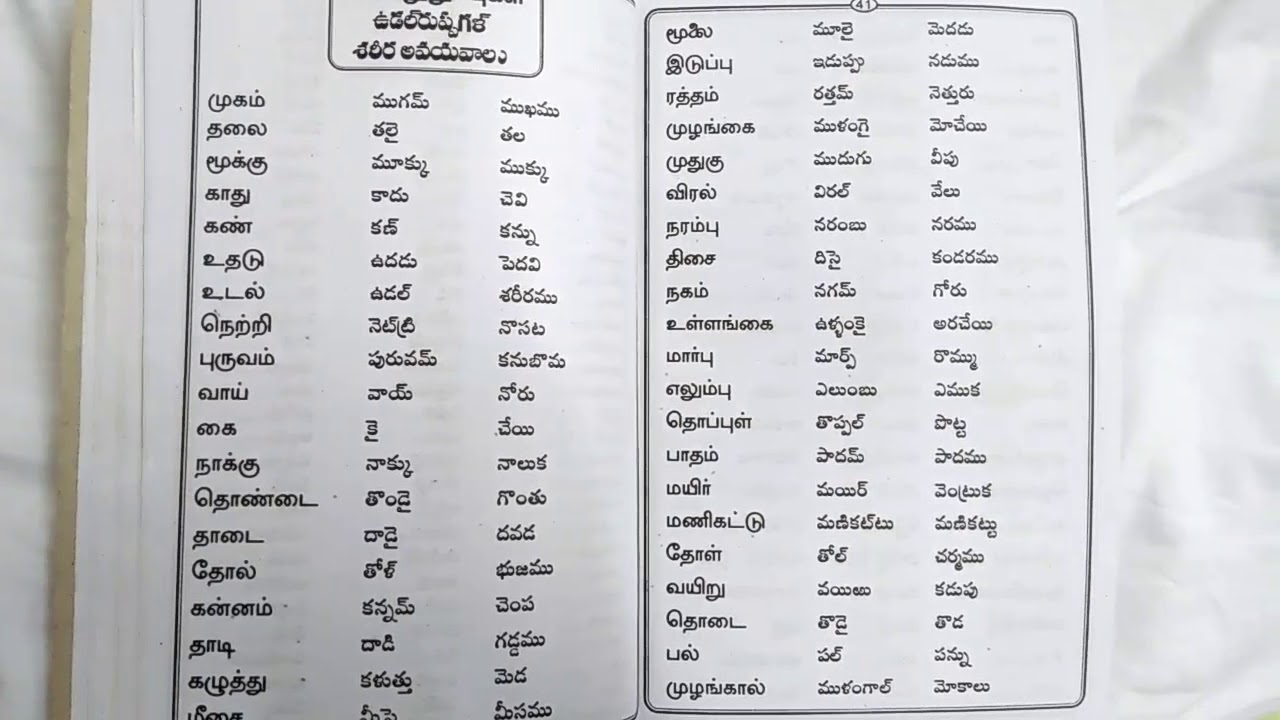 ఉడల్‌రుప్పుగళ్
శరీర అవయవాలు
முகம் ముగమ్ ముఖము
தலை తలై తల
மூக்கு మూక్కు ముక్కు
காது కాదు చెవి
கண் కణ్ కన్ను
உதடு ఉదడు పెదవి
உடல் ఉడల్ శరీరము
நெற்றி నెట్‌ట్రి నొసట
புருவம் పురువమ్ కనుబొమ
வாய் వాయ్ నోరు
கை కై చేయి
நாக்கு నాక్కు నాలుక
தொண்டை తొండై గొంతు
தாடை దాడై దవడ
தோல் తోళ్ భుజము
கன்னம் కన్నమ్ చెంప
தாடி దాడి గడ్డము
கழுத்து కళుత్తు మెడ
மீசை మీసై మీసము
41
மூலை మూలై మెదడు
இடுப்பு ఇడుప్పు నడుము
ரத்தம் రత్తమ్ నెత్తురు
முழங்கை ముళంగై మోచేయి
முதுகு ముదుగు వీపు
விரல் విరల్ వేలు
நரம்பு నరంబు నరము
திசை దిసై కండరము
நகம் నగమ్ గోరు
உள்ளங்கை ఉళ్ళంకై అరచేయి
மார்பு మార్ప్ రొమ్ము
எலும்பு ఎలుంబు ఎముక
தொப்புள் తొప్పల్ పొట్ట
பாதம் పాదమ్ పాదము
மயிர் మయిర్ వెంట్రుక
மணிகட்டு మణికట్‌టు మణికట్టు
தோள் తోల్ చర్మము
வயிறு వయిఱు కడుపు
தொடை తొడై తొడ
பல் పల్ పన్ను
முழங்கால் ముళంగాల్ మోకాలు